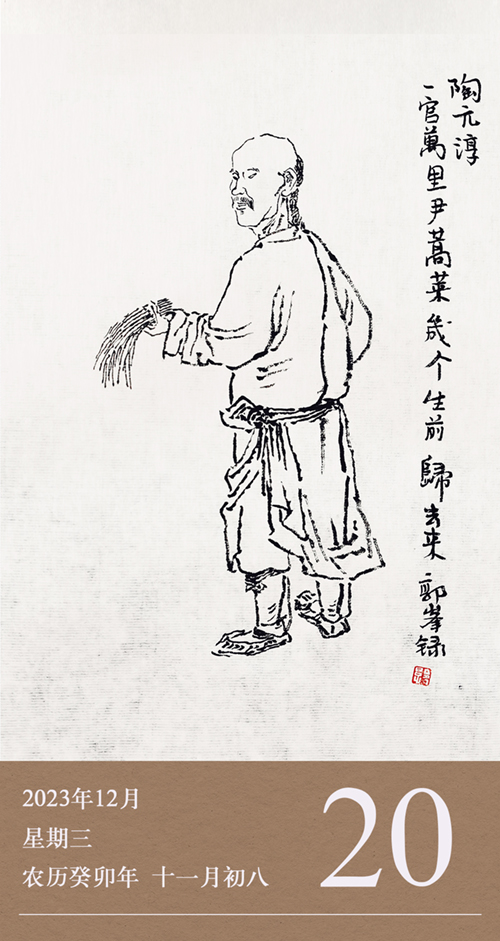 陶元淳
一官萬里尹蒿萊幾个生前歸去来郭峯録
2023年12月
星期三
农历癸卯年 十一月初八
20